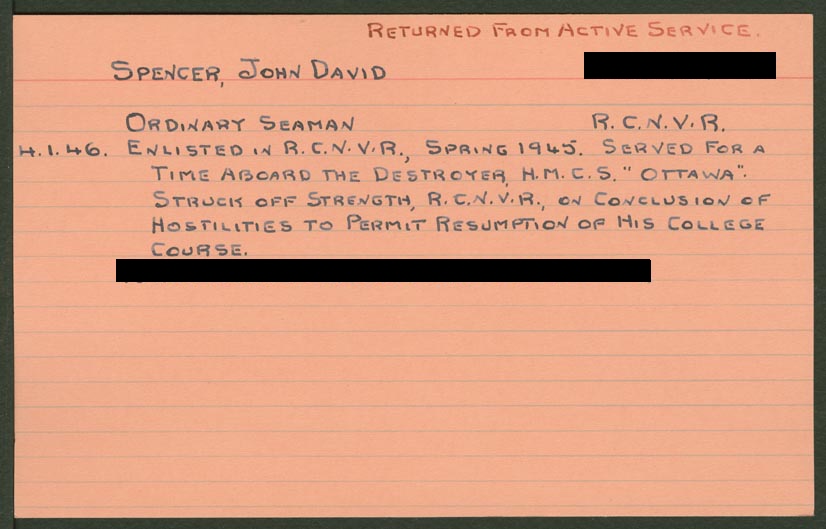 RETURNED FROM ACTIVE SERVICE.
SPENCER, JOHN DAVID
ORDINARY SEAMAN R.C.N.V.R.
4.1.46. ENLISTED IN R.C.N.V.R., SPRING 1945. SERVED FOR A
TIME ABOARD THE DESTROYER, H.M.C.S. "OTTAWA".
STRUCK OFF STRENGTH, R.C.N.V.R., ON CONCLUSION OF
HOSTILITIES TO PERMIT RESUMPTION OF HIS COLLEGE
COURSE.